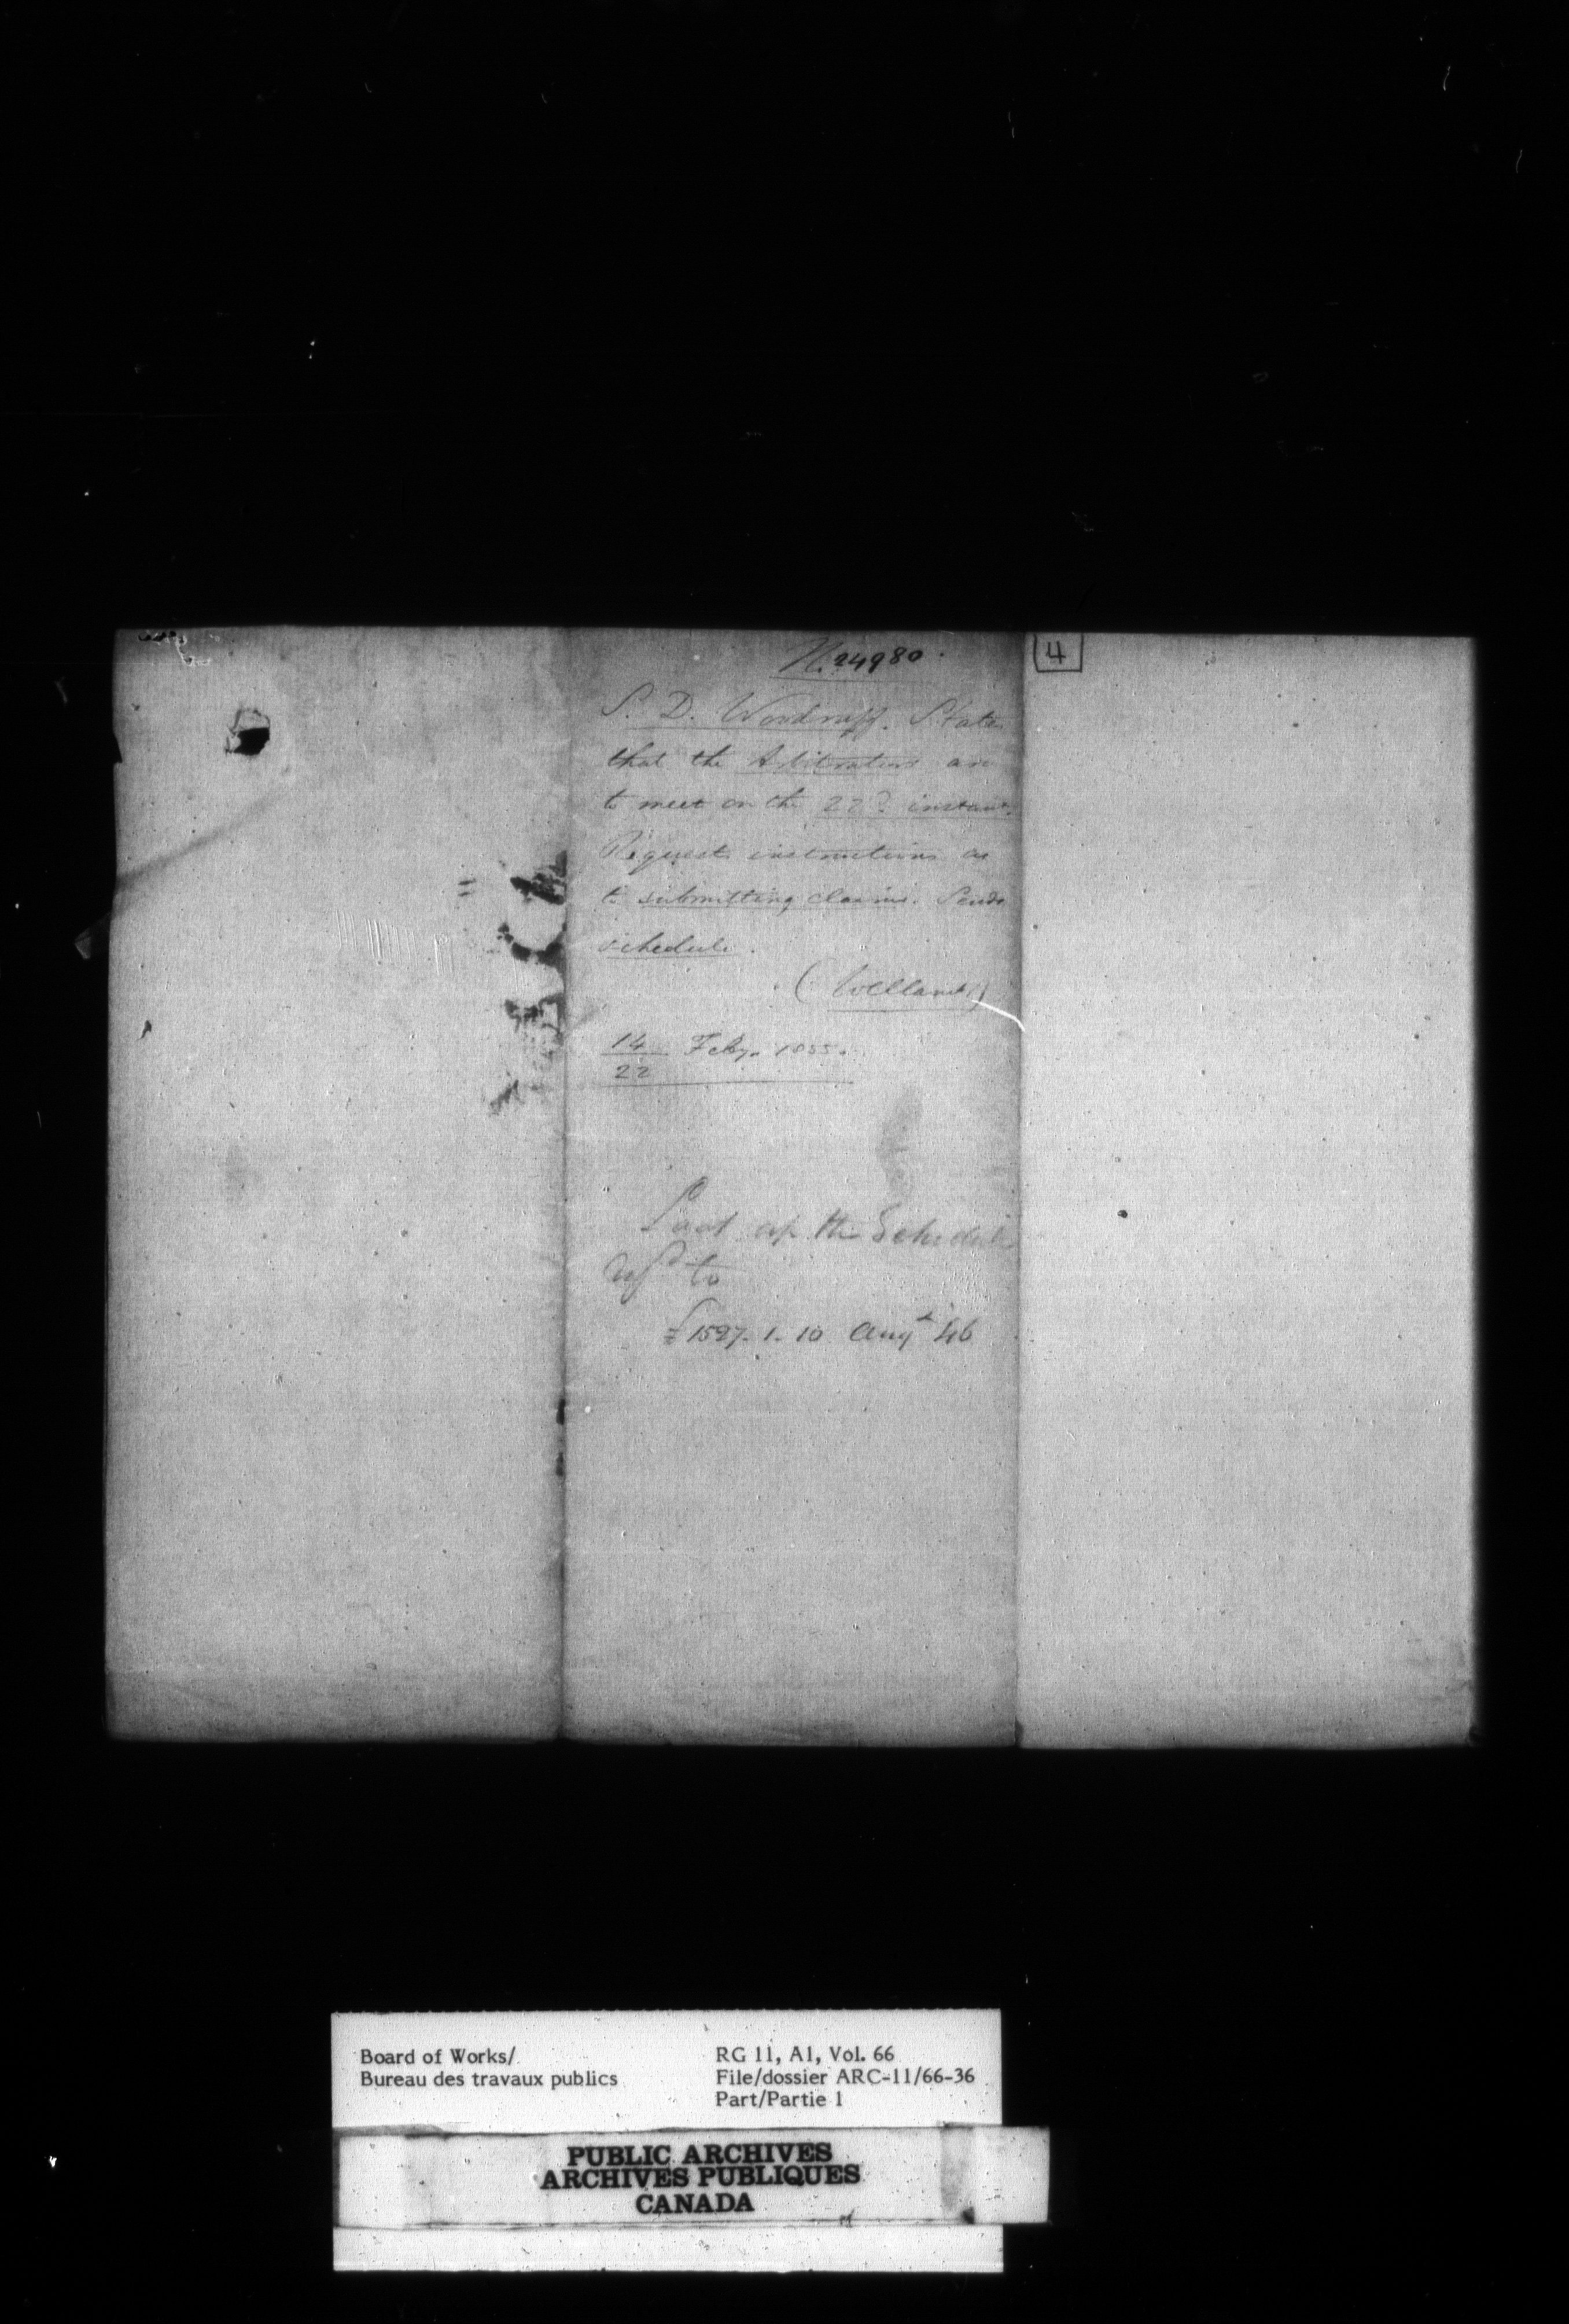 N. 24980.
4
S. D. Woodruff. States
that the Arbitrators are
to meet on the 22d. instant.
Requests instructions as
to submitting claims. Sends
schedule.
(Welland)
14 Feby. 1855.
22
of the Schedule
to
£1587. 1. 10 Augt 46
Board of Works/
Bureau des travaux publics
RG 11, A1, Vol. 66
File/dossier ARC-11/66-36
Part/Partie 1
PUBLIC ARCHIVES
ARCHIVES PUBLIQUES
CANADA